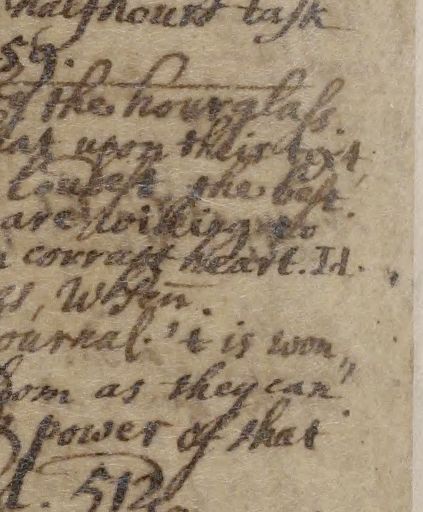 half hours task
59.
of the hourglass.
upon their text,
Loudest, the best.
are willing to
corrupt heart. Id.
Whsen.
ournal. 't is won,,
hom as they can
power of that
l. 512